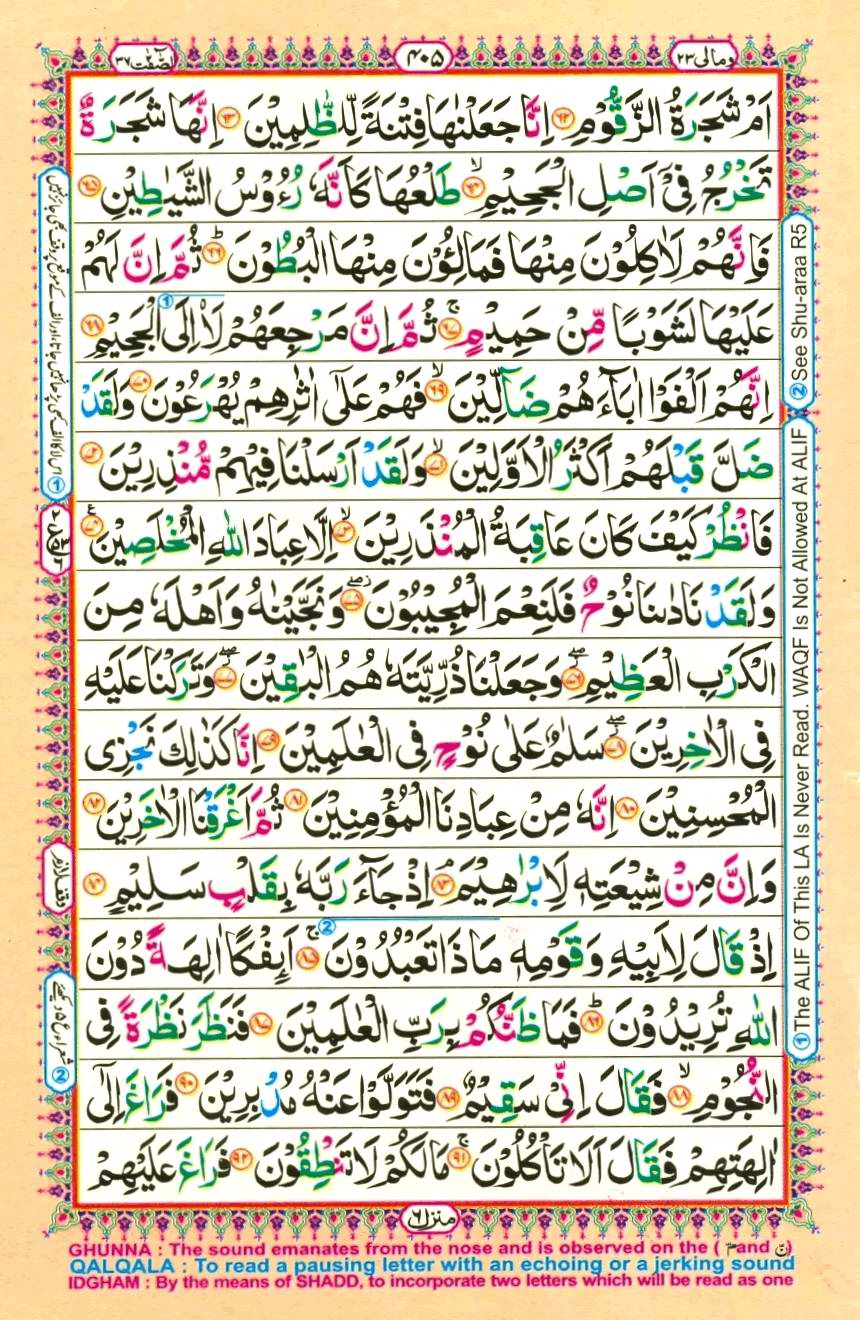 وما لی ۲۳
۴۰۵
الصّٰفّٰت ۳۷
اَمْ شَجَرَةُ الزَّقُّوْمِ ۶۲ اِنَّا جَعَلْنٰهَا فِتْنَةً لِّلظّٰلِمِيْنَ ۶۳ اِنَّهَا شَجَرَةٌ
تَخْرُجُ فِيْۤ اَصْلِ الْجَحِيْمِ ۶۴ۙ طَلْعُهَا كَاَنَّهٗ رُءُوْسُ الشَّيٰطِيْنِ ۶۵
فَاِنَّهُمْ لَاٰكِلُوْنَ مِنْهَا فَمَالِـُٔوْنَ مِنْهَا الْبُطُوْنَ ۶۶ؕ ثُمَّ اِنَّ لَهُمْ
عَلَيْهَا لَشَوْبًا مِّنْ حَمِيْمٍ ۶۷ۚ ثُمَّ اِنَّ مَرْجِعَهُمْ لَا۟اِلَى الْجَحِيْمِ ۶۸
اِنَّهُمْ اَلْفَوْا اٰبَآءَهُمْ ضَآلِّيْنَ ۶۹ۙ فَهُمْ عَلٰۤى اٰثٰرِهِمْ يُهْرَعُوْنَ ۷۰ وَلَقَدْ
ضَلَّ قَبْلَهُمْ اَكْثَرُ الْاَوَّلِيْنَ ۷۱ۙ وَلَقَدْ اَرْسَلْنَا فِيْهِمْ مُّنْذِرِيْنَ ۷۲
فَانْظُرْ كَيْفَ كَانَ عَاقِبَةُ الْمُنْذَرِيْنَ ۷۳ۙ اِلَّا عِبَادَ اللّٰهِ الْمُخْلَصِيْنَ ۷۴
وَلَقَدْ نَادٰىنَا نُوْحٌ فَلَنِعْمَ الْمُجِيْبُوْنَ ۷۵ وَنَجَّيْنٰهُ وَاَهْلَهٗ مِنَ
الْكَرْبِ الْعَظِيْمِ ۷۶ وَجَعَلْنَا ذُرِّيَّتَهٗ هُمُ الْبٰقِيْنَ ۷۷ وَتَرَكْنَا عَلَيْهِ
فِي الْاٰخِرِيْنَ ۷۸ سَلٰمٌ عَلٰى نُوْحٍ فِي الْعٰلَمِيْنَ ۷۹ اِنَّا كَذٰلِكَ نَجْزِي
الْمُحْسِنِيْنَ ۸۰ اِنَّهٗ مِنْ عِبَادِنَا الْمُؤْمِنِيْنَ ۸۱ ثُمَّ اَغْرَقْنَا الْاٰخَرِيْنَ ۸۲
وَاِنَّ مِنْ شِيْعَتِهٖ لَاِبْرٰهِيْمَ ۸۳ۘ اِذْ جَآءَ رَبَّهٗ بِقَلْبٍ سَلِيْمٍ ۸۴
اِذْ قَالَ لِاَبِيْهِ وَقَوْمِهٖ مَاذَا تَعْبُدُوْنَ ۸۵ۚ اَئِفْكًا اٰلِهَةً دُوْنَ
اللّٰهِ تُرِيْدُوْنَ ۸۶ؕ فَمَا ظَنُّكُمْ بِرَبِّ الْعٰلَمِيْنَ ۸۷ فَنَظَرَ نَظْرَةً فِي
النُّجُوْمِ ۸۸ۙ فَقَالَ اِنِّيْ سَقِيْمٌ ۸۹ فَتَوَلَّوْا عَنْهُ مُدْبِرِيْنَ ۹۰ فَرَاغَ اِلٰۤى
اٰلِهَتِهِمْ فَقَالَ اَلَا تَاْكُلُوْنَ ۹۱ۚ مَا لَكُمْ لَا تَنْطِقُوْنَ ۹۲ فَرَاغَ عَلَيْهِمْ
② See Shu-araa R5
① The ALIF Of This LA Is Never Read. WAQF Is Not Allowed At ALIF
وقف لازم
منزل ۶
GHUNNA : The sound emanates from the nose and is observed on the ( مّ and نّ )
QALQALA : To read a pausing letter with an echoing or a jerking sound
IDGHAM : By the means of SHADD, to incorporate two letters which will be read as one